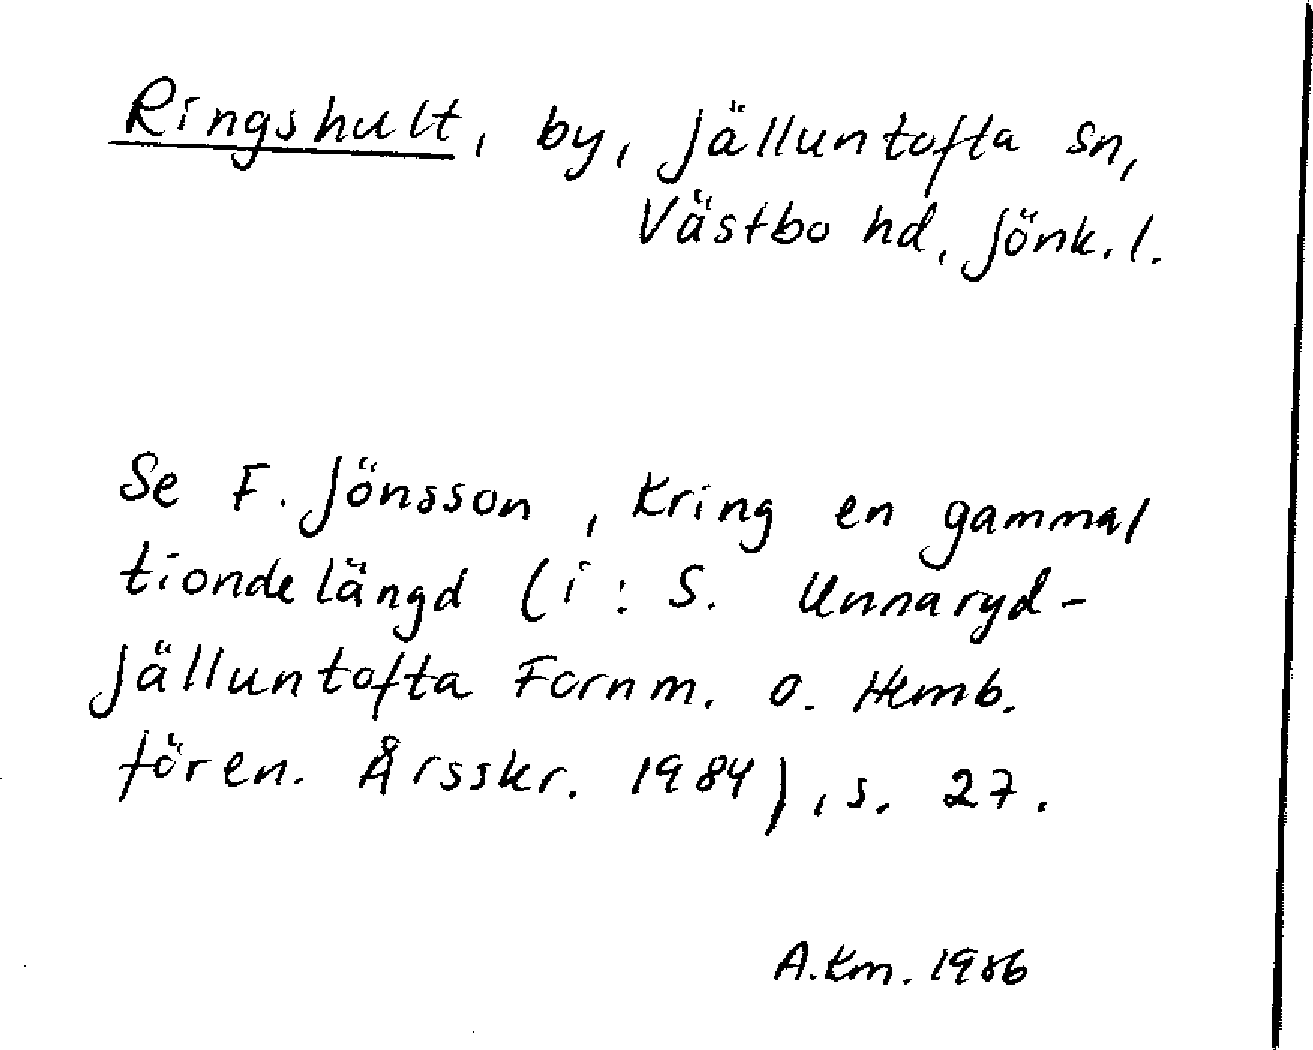 Ringshult, by, Jälluntofta sn,
Västbo hd, Jönk. l.
Se F. Jönsson, Kring en gammal
tiondelängd (i: S. Unnaryd-
Jälluntofta Fornm. o. Hemb.
fören. Årsskr. 1984), s. 27.
A.Km. 1986